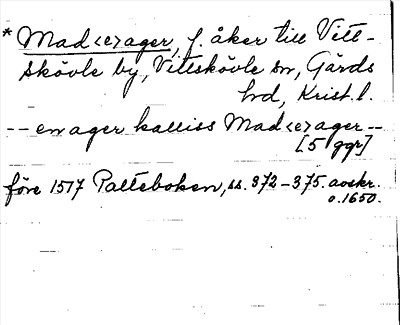 * Mad<e>ager, f. åker till Vitt-
skövle by, Vittskövle sn, Gärds
hd, Krist. l.
-- en ager kalliss Mad<e>ager --
[5 ggr]
före 1517 Palteboken, ss. 372-375. avskr.
o. 1650.